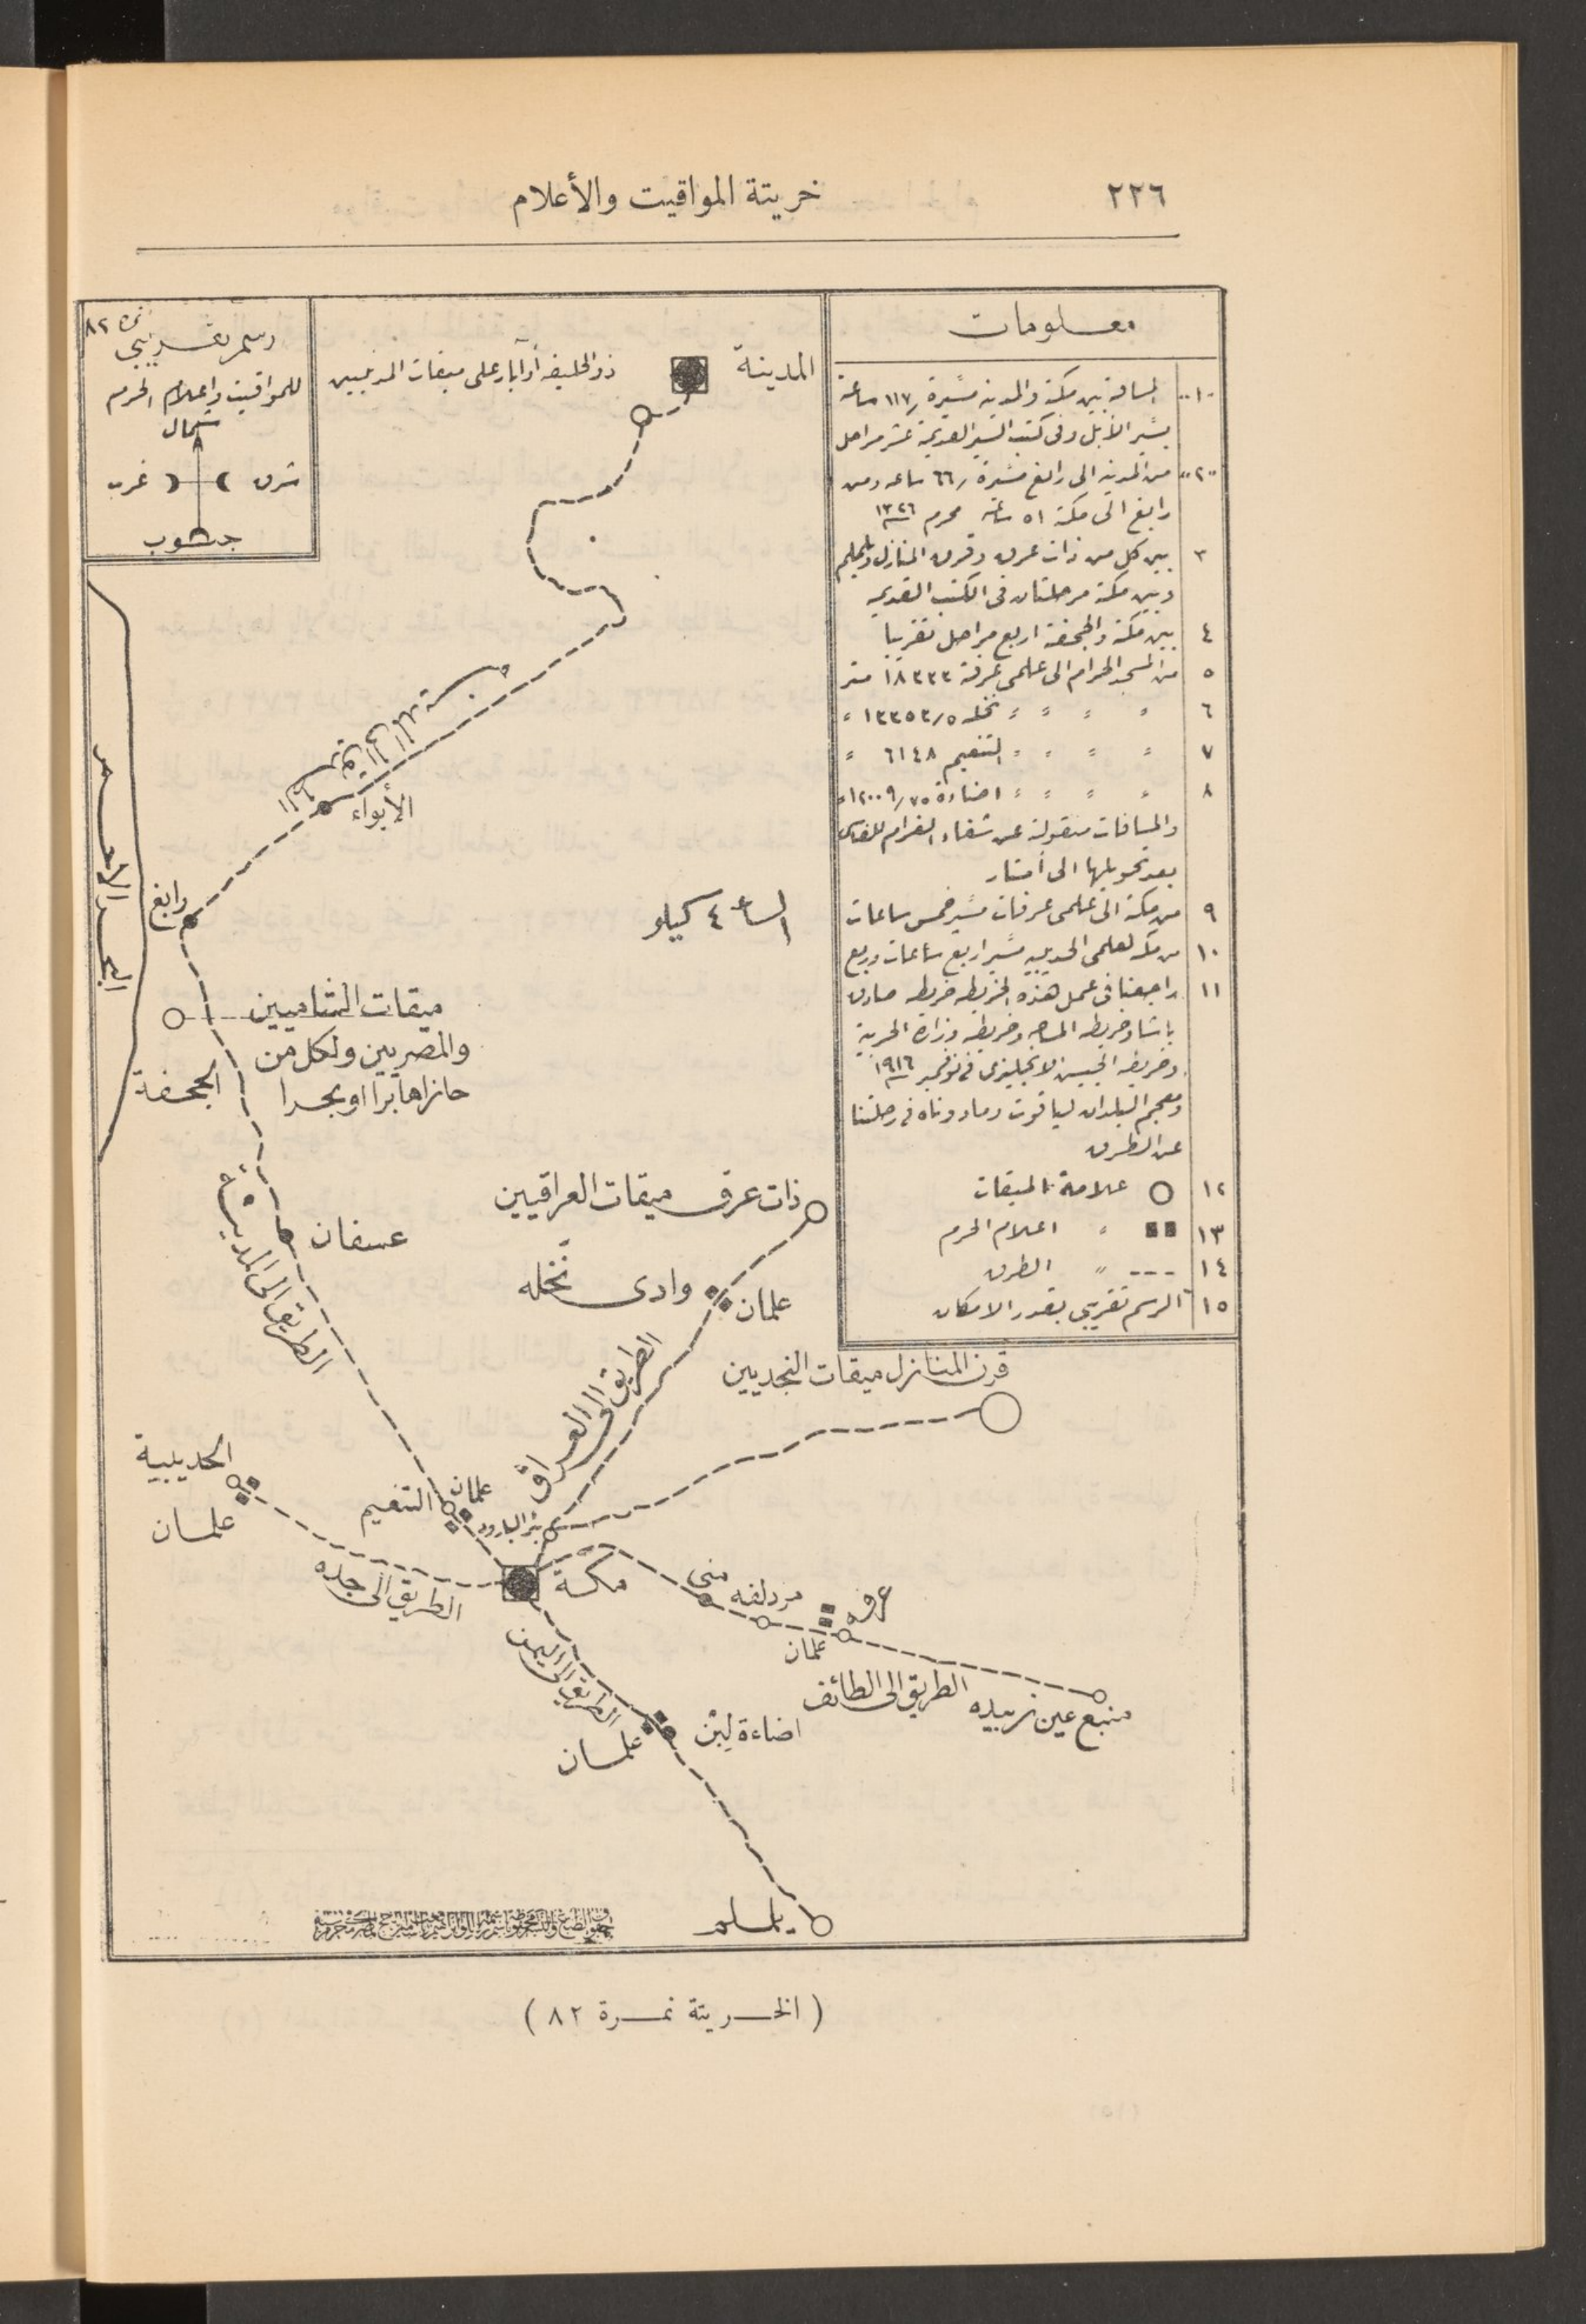 ٢٢٦
خريتة المواقيت والأعلام
معلومات
١ المسافة بين مكة والمدينة مسيرة ١١٧ ساعة
بسير الأبل وفى كتب السير القديمة عشر مراحل
٢ من المدينة الى رابغ مسيرة ٦٦ ساعه ومن
رابغ الى مكة ٥١ ساعة محرم ١٣٢٦
٣ بين كل من ذات عرق وقرن المنازل ويلملم
وبين مكة مرحلتان فى الكتب القديمه
٤ بين مكة والجحفة اربع مراحل تقريبا
٥ من المسجد الحرام الى علمى عرفة ١٨٣٣٣ متر
٦ " " " " نخله ١٣٣٥٣٫٥ "
٧ " " " " التنعيم ٦١٤٨ "
٨ " " " " اضاءة ١٢٠٠٩٫٧٥ "
والمسافات منقولة عن شفاء الغرام للفاسى
بعد تحويلها الى أمتار
٩ من مكة الى علمى عرفات مسير خمس ساعات
١٠ من مكه لعلمى الحديبيه مسير اربع ساعات وربع
١١ راجعنا فى عمل هذه الخريطه خريطه صادق
باشا وخريطه المساحه وخريطه وزارة الحربية
وخريطه الجيش الانجليزى فى نوفمبر ١٩١٦
ومعجم البلدان لياقوت وما دوناه فى رحلتنا
عن الطرق
١٢ علامة الميقات
١٣ " اعلام الحرم
١٤ " الطرق
١٥ الرسم تقريبى بقدر الامكان
نمرة ٨٢
رسم تقريبى
للمواقيت واعلام الحرم
شمال
شرق
غرب
جنوب
المدينة
ذو الحليفه أو آبار على ميقات المدنيين
الأبواء
البحر الاحمر
رابغ
الساعة ٤ كيلو
ميقات الشاميين
والمصريين ولكل من
حازاها برا او بحرا
الجحفة
ذات عرق ميقات العراقيين
الطريق الى المدينة
عسفان
وادى نخله
علمان
الطريق الى العراق
قرن المنازل ميقات النجديين
الحديبية
علمان
علمان
التنعيم
بئر البارود
الطريق الى جده
مكة
منى
مزدلفه
عرفه
علمان
الطريق الى الطائف
منبع عين زبيده
الطريق الى اليمن
علمان
اضاءة لبن
يلملم
( الخريتة نمرة ٨٢ )